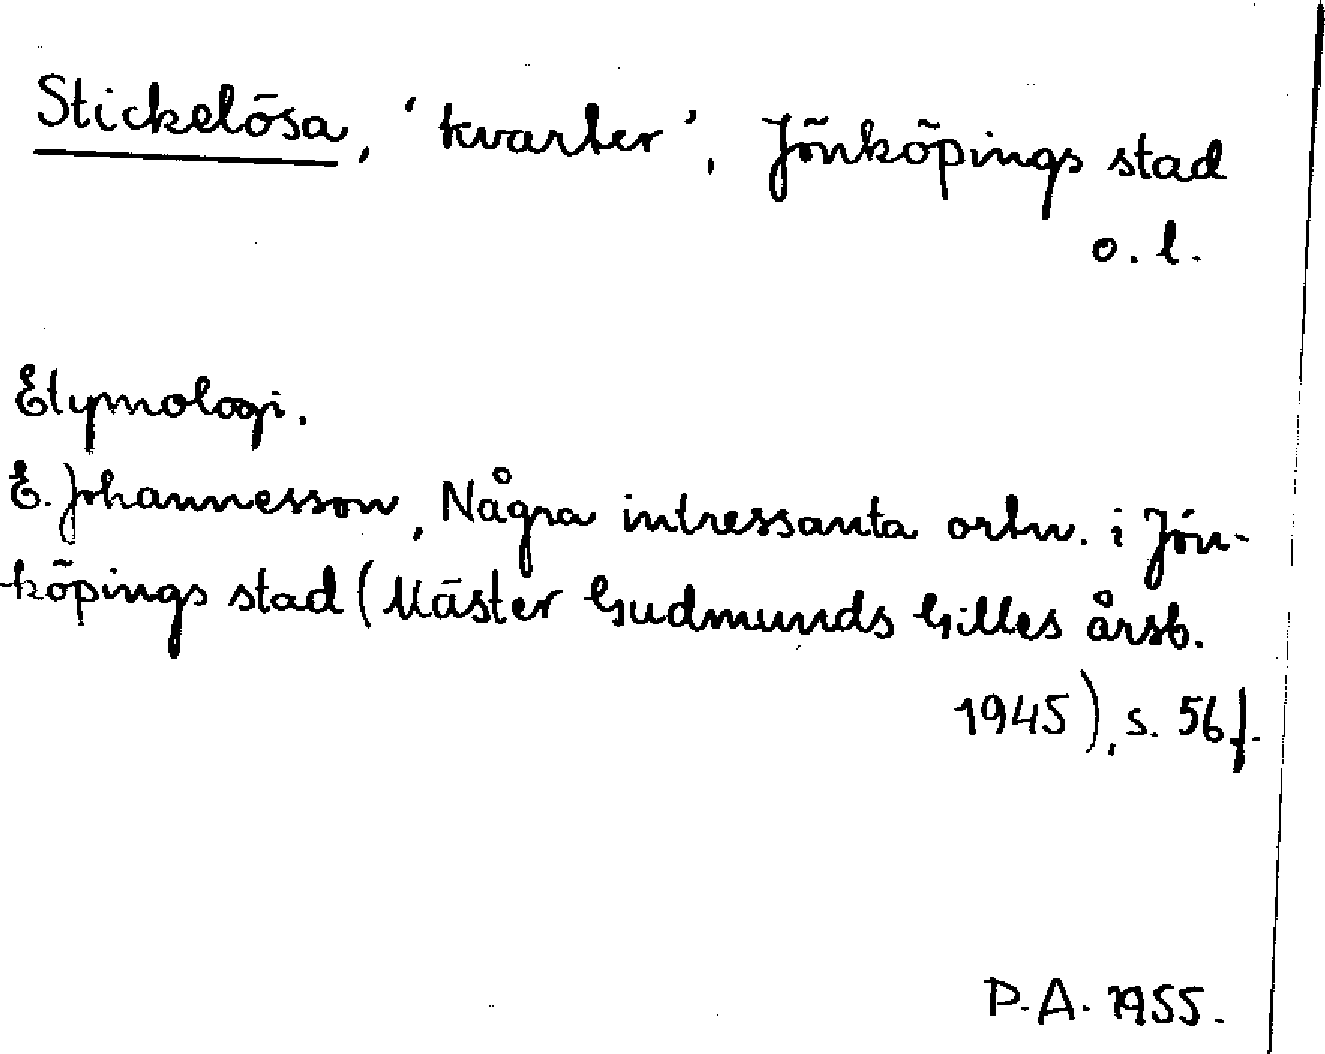 Stickelösa, 'kvarter', Jönköpings stad
o. l.
Etymologi.
E. Johannesson, Några intressanta ortn. i Jön-
köpings stad (Mäster Gudmunds Gilles årsb.
1945), s. 56 f.
P. A. 1955.